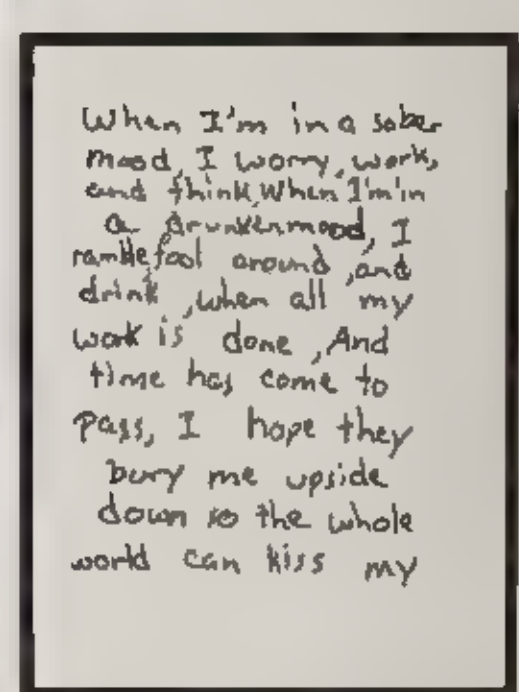 When I'm in a sober
mood, I worry, work,
and think, When I'm in
a drunken mood, I
ramble, fool around, and
drink, when all my
work is done, And
time has come to
pass, I hope they
bury me upside
down so the whole
world can kiss my